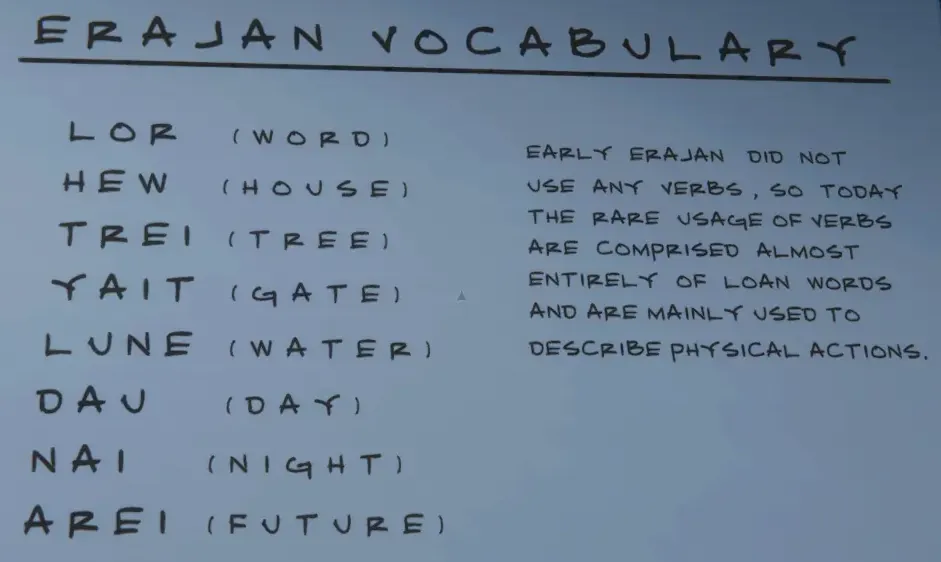 ERAJAN VOCABULARY
LOR (WORD)
HEW (HOUSE)
TREI (TREE)
YAIT (GATE)
LUNE (WATER)
DAU (DAY)
NAI (NIGHT)
AREI (FUTURE)
EARLY ERAJAN DID NOT
USE ANY VERBS, SO TODAY
THE RARE USAGE OF VERBS
ARE COMPRISED ALMOST
ENTIRELY OF LOAN WORDS
AND ARE MAINLY USED TO
DESCRIBE PHYSICAL ACTIONS.